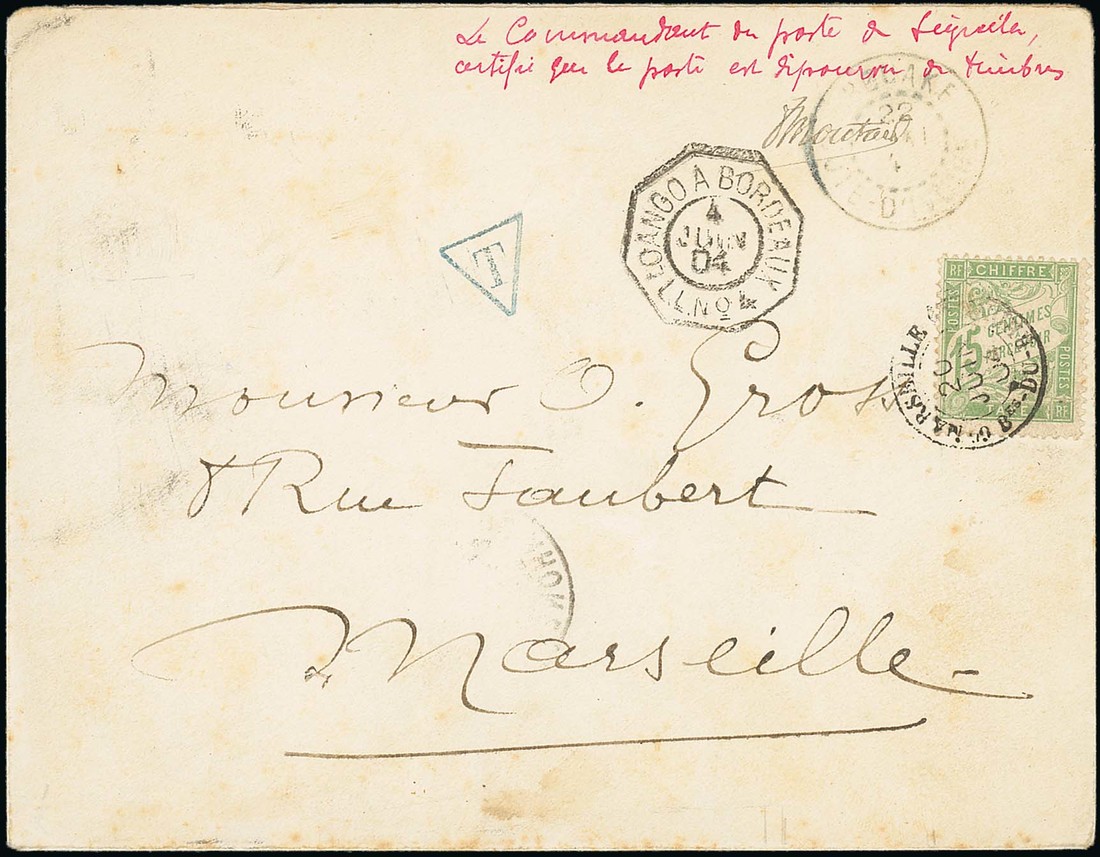 Le Commandant du poste de Séguéla,
certifie que le poste est dépourvu de timbres
BOUAKE
22
MAI
4
COTE-D'IVOIRE
LOANGO A BORDEAUX
4
JUIN
04
L.L.Nº 4
T
RF CHIFFRE
POSTES
15
CENTIMES
À PERCEVOIR
POSTES
RF
MARSEILLE
20
JUIN
04
Bes-DU-RHONE
Monsieur O. Gros
8 Rue Jaubert
Marseille